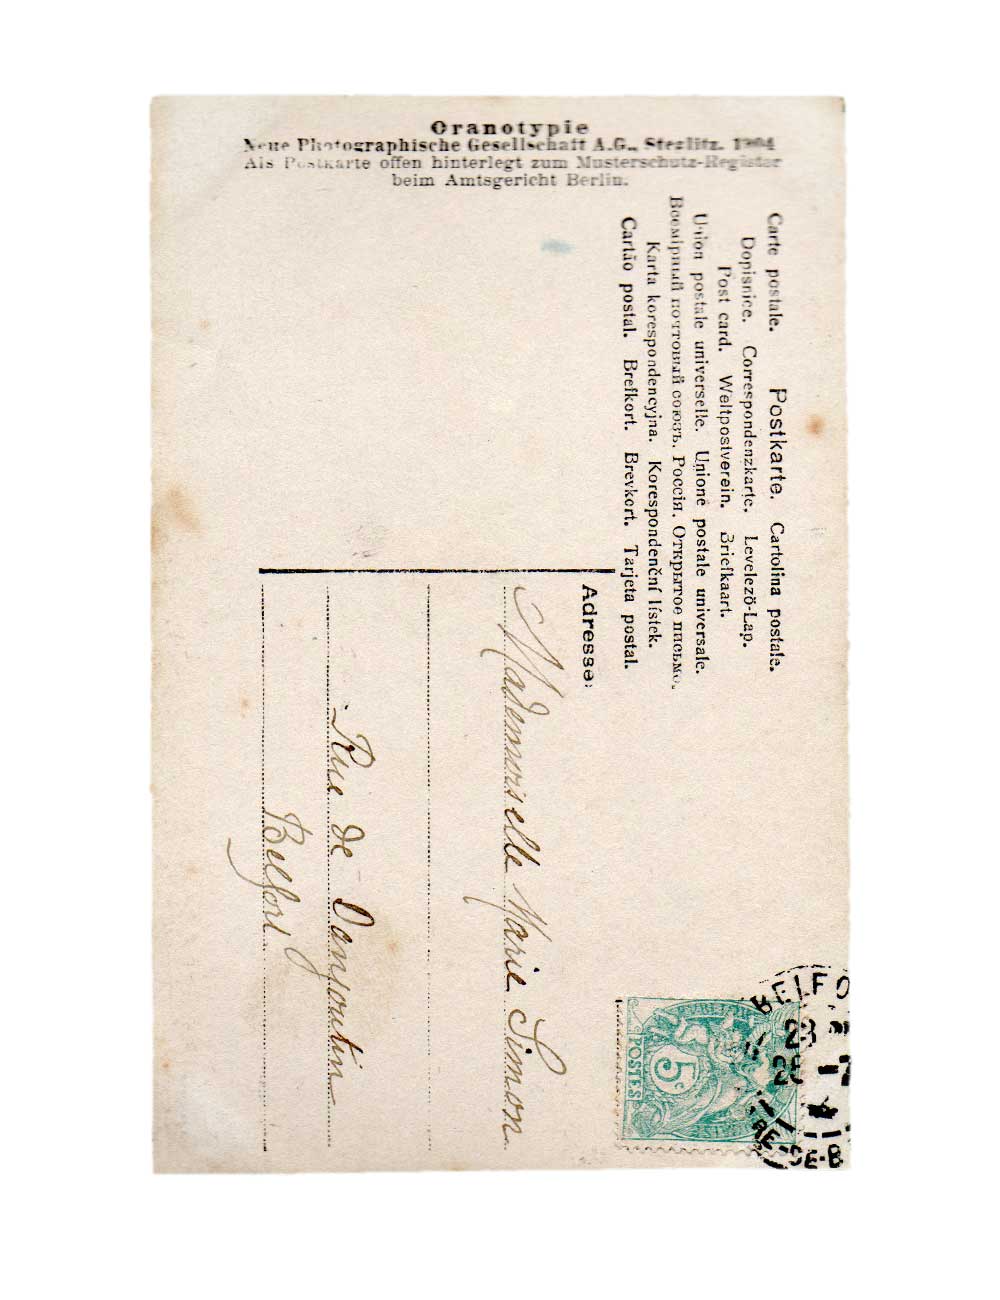 Oranotypie
Neue Photographische Gesellschaft A.G., Steglitz. 1904
Als Postkarte offen hinterlegt zum Musterschutz-Register
beim Amtsgericht Berlin.
Carte postale. Postkarte. Cartolina postale.
Dopisnice. Correspondenzkarte. Levelező-Lap.
Post card. Weltpostverein. Briefkaart.
Union postale universelle. Unione postale universale.
Всемірный почтовый союзъ. Россія. Открытое письмо.
Karta korespondencyjna. Korespondenční lístek.
Cartão postal. Brefkort. Brevkort. Tarjeta postal.
Adresse:
Mademoiselle Marie Simon
Rue de Danjoutin
Belfort
POSTES
5c
BELFO
28
25 -7
RE-DE-B